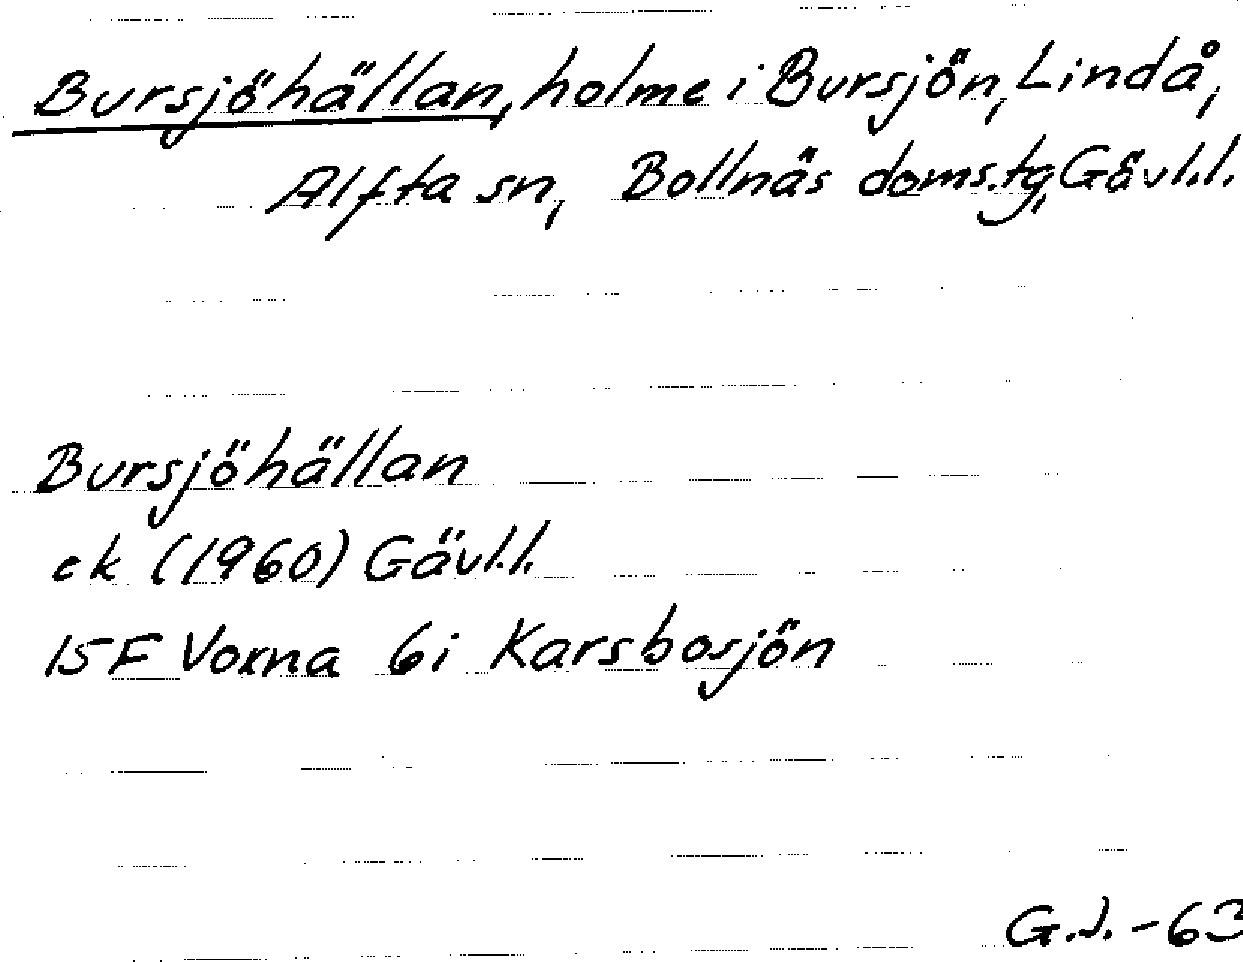 Bursjöhällan, holme i Bursjön, Lindå,
Alfta sn, Bollnäs doms.tg, Gävl.l.
Bursjöhällan
ek (1960) Gävl.l.
15F Voxna 6i Karsbosjön
G.J. -63